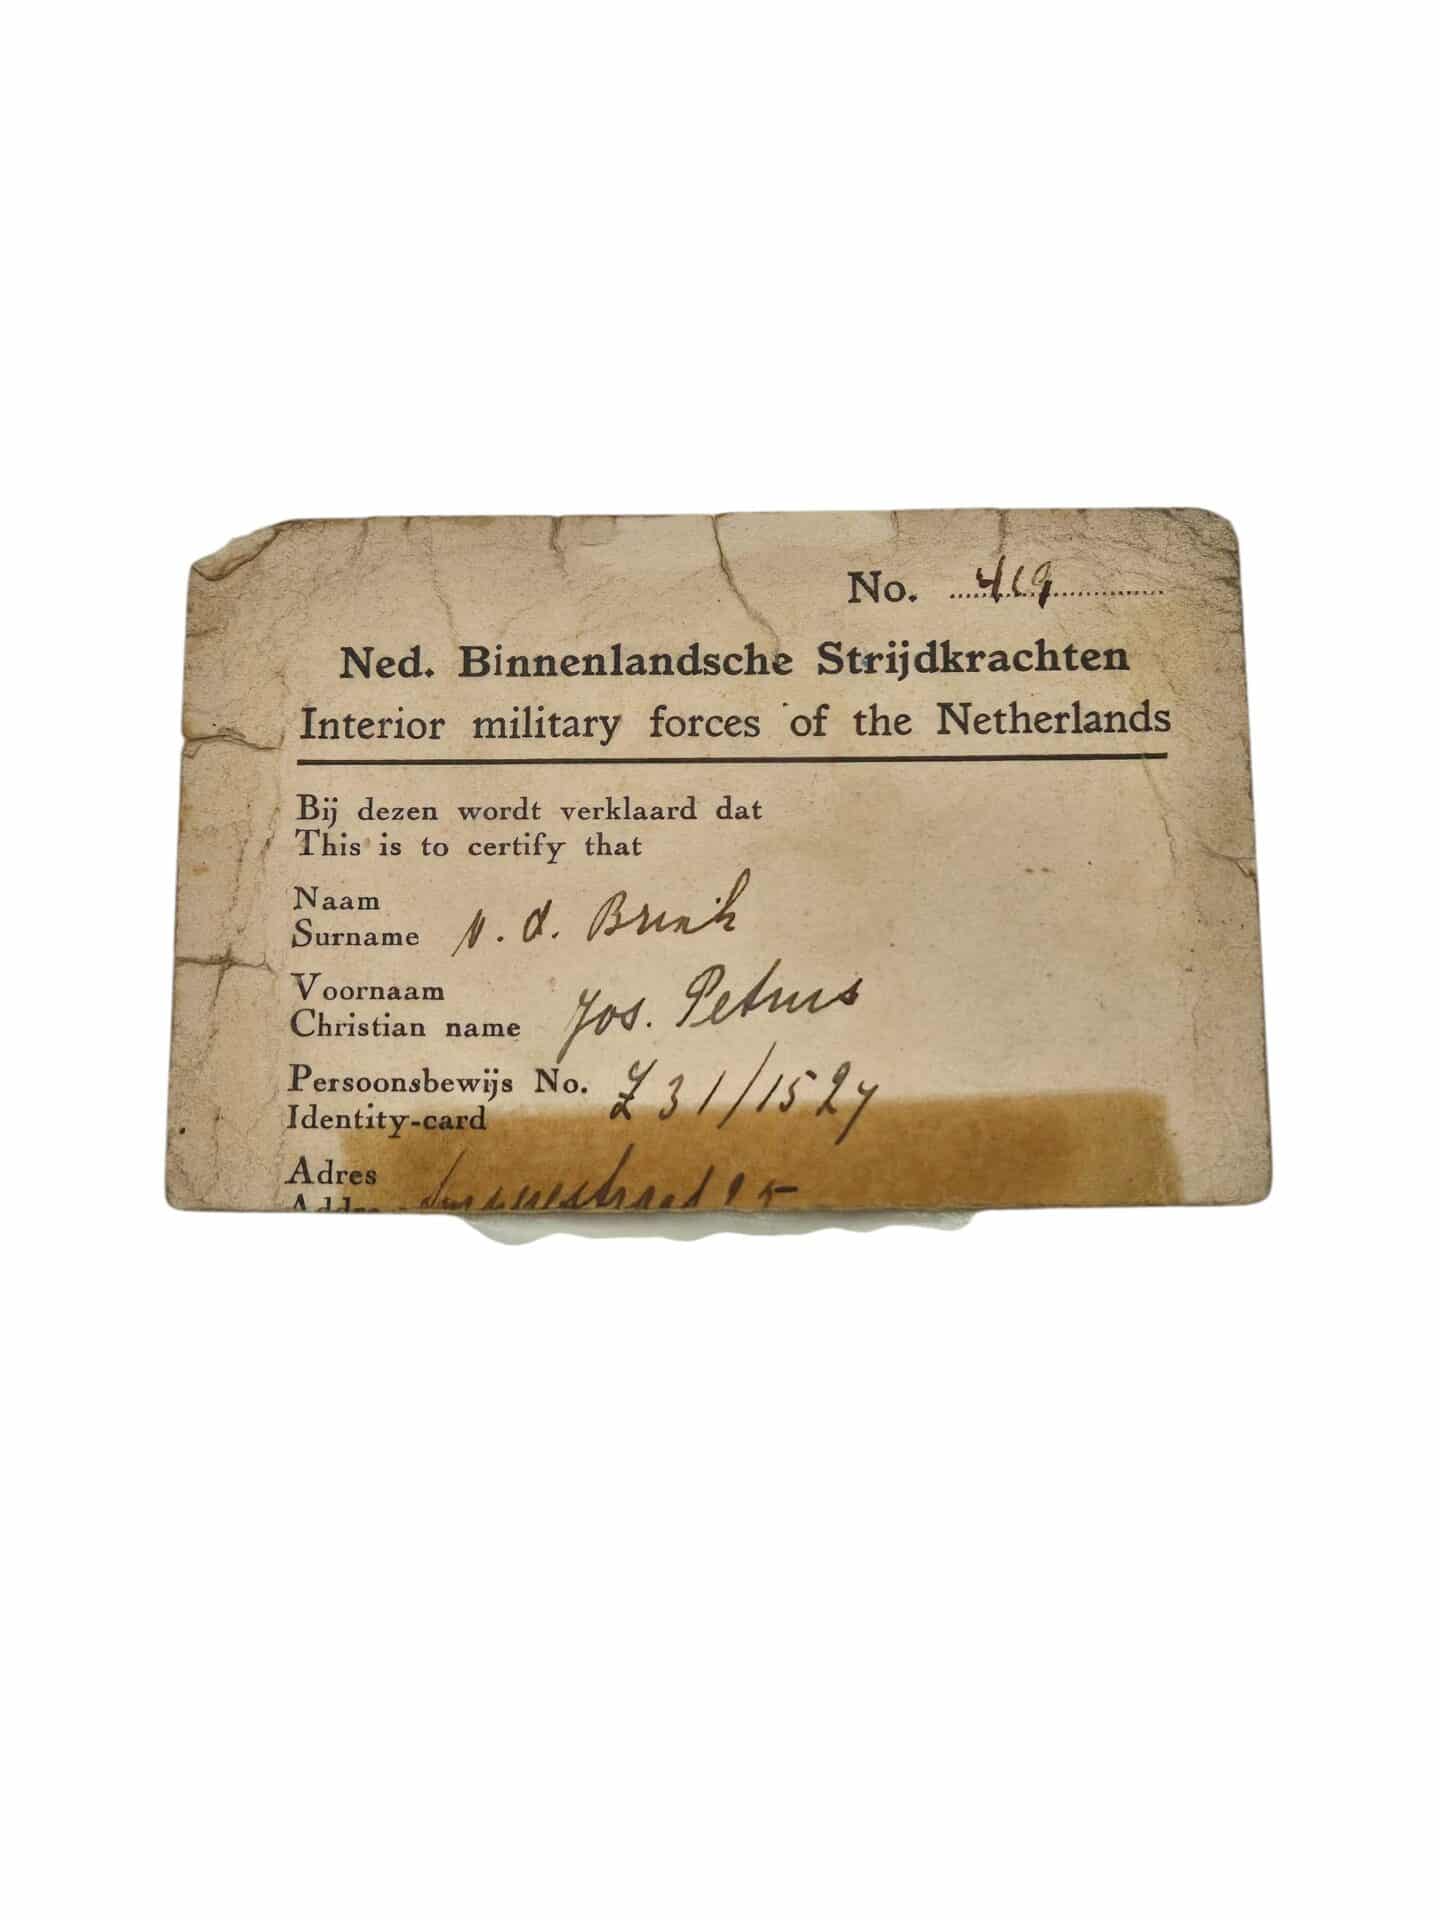 No. 419
Ned. Binnenlandsche Strijdkrachten
Interior military forces of the Netherlands
Bij dezen wordt verklaard dat
This is to certify that
Naam
Surname v. d. Brink
Voornaam
Christian name Jos. Petrus
Persoonsbewijs No. Z 31/1527
Identity-card
Adres